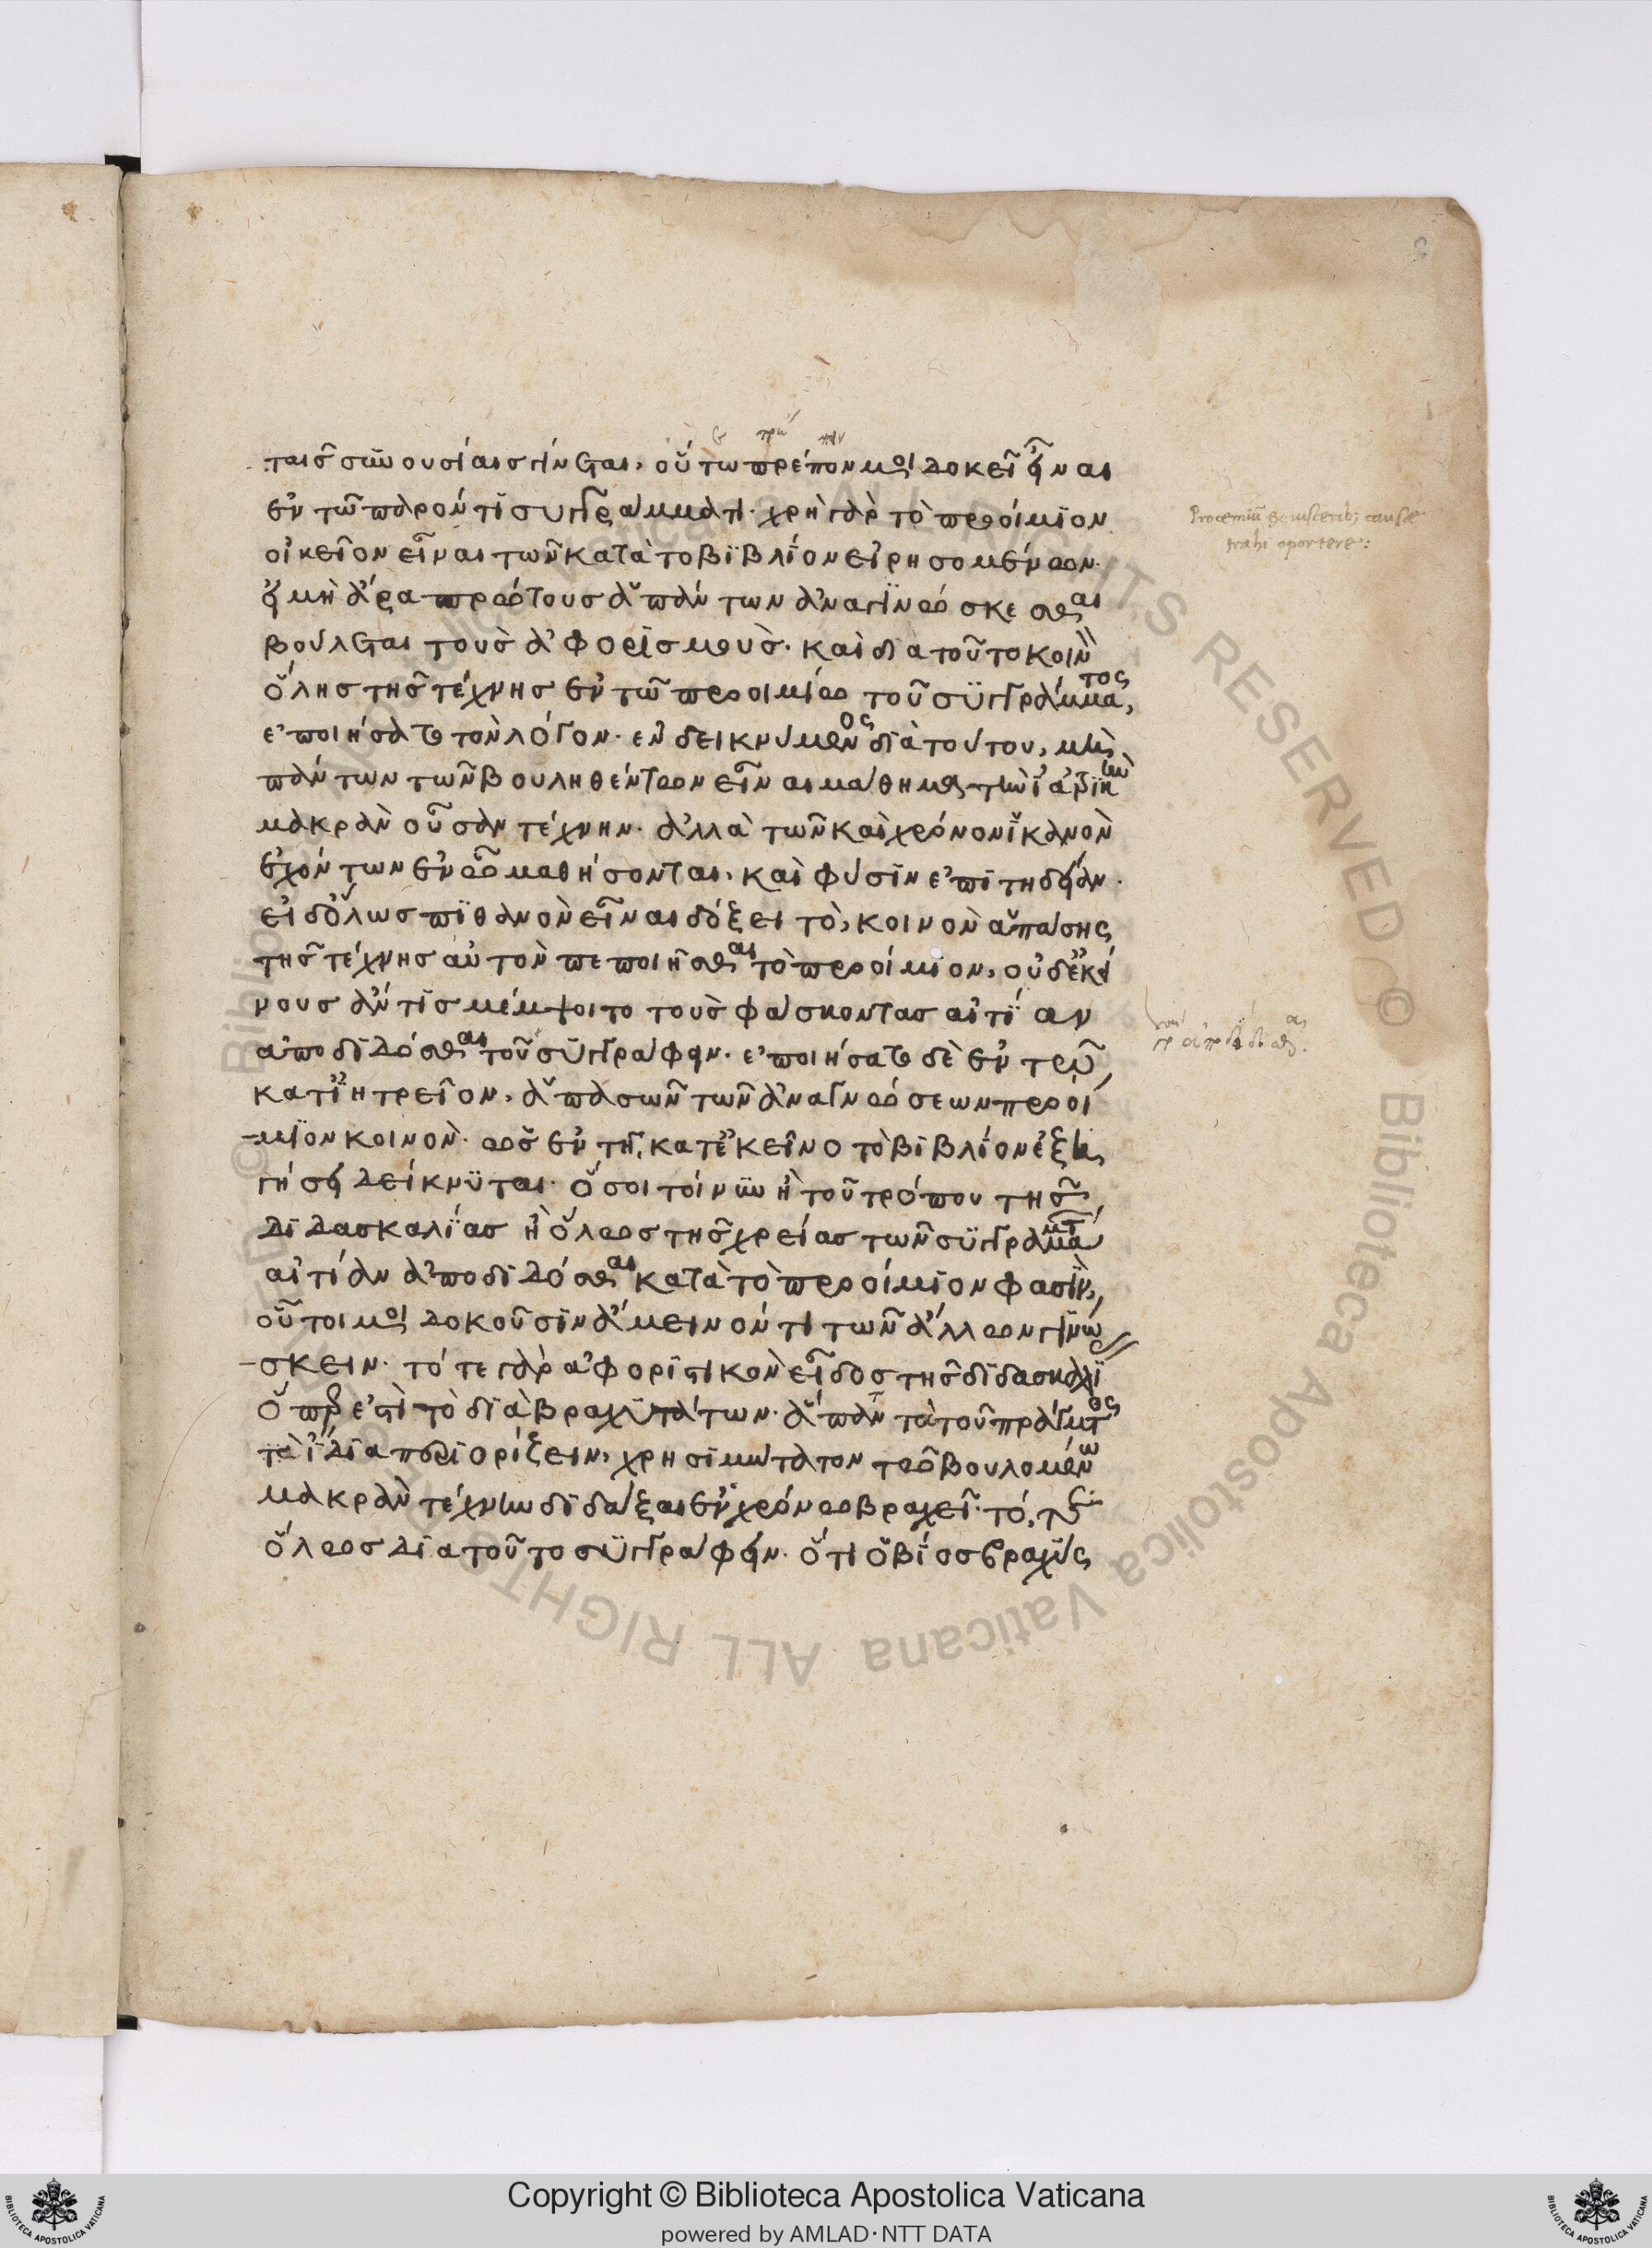 ταῖς συνουσίαις γίνεται, οὕτω πρέπον μοι δοκεῖ εἶναι
ἐν τῶ παρόντι συγγράμματι· χρὴ γὰρ τὸ προοίμιον
οἰκεῖον εἶναι τῶν κατὰ το βιβλίον εἰρησομένων·
εἰ μὴ ἄρα πρώτους ἁπάντων ἀναγινώσκεσθαι
βούλεται τοὺς ἀφορισμοὺς· καὶ διατοῦτο κοινὸν
ὅλης τῆς τέχνης ἐν τῶ προοιμίω τοῦ συγγράμματος,
ἐποιήσατο τὸν λόγον· ἐνδεικνύμενος διὰ τούτου, μὴ
πάντων τῶν βουληθέντων εἶναι μάθημα τὴν ἰατρικὴν
μακρὰν οὖσαν τέχνην· ἀλλὰ τῶν καὶ χρόνον ἱκανὸν
ἐχόντων ἐν ῶ μαθήσονται, καὶ φύσιν ἐπιτηδείαν·
εἰ δ' ὅλως πιθανὸν εἶναι δόξει τὸ, κοινὸν ἁπάσης
τῆς τέχνης αὐτὸν πεποιῆσθαι τὸ προοίμιον, οὐδ' ἐκεί
νους ἄν τις μέμψοιτο τοὺς φάσκοντας αἰτίαν
ἀποδίδοσθαι τοῦ συγγράφειν· ἐποιήσατο δὲ ἐν τῶ
κατ' ἰητρεῖον, ἁπασῶν τῶν ἀναγνώσεων προοί
μιον κοινὸν· ὡς ἐν τῆ κατ' ἐκεῖνο τὸ βιβλίον ἐξη
γήσει δείκνυται· ὅσοι τοίνυν ἢ τοῦ τρόπου τῆς
διδασκαλίας ἢ ὅλως τῆς χρείας τῶν συγγραμμάτων
αἰτίαν ἀποδίδοσθαι κατὰ τὸ προοίμιον φασὶν,
οὗτοί μοι δοκοῦσιν ἄμεινόν τι τῶν ἄλλων γινώ
σκειν· τό τε γὰρ ἀφοριστικὸν εἶδος τῆς διδασκαλίας
ὅπερ ἐστὶ τὸ διὰ βραχυτάτων· ἅπαντα τὰ τοῦ πράγματος
τὰ ἴδια περιορίζειν, χρησιμώτατον τῶ βουλομένω
μακρὰν τέχνην διδάξαι ἐν χρόνω βραχεῖ· τό, τε
ὅλως διατοῦτο συγγράφειν· ὅτι ὁ βίος βραχὺς
Procemiũ ex visceribꝫ cause
trahi oportere:
γρ ἀποδίδοσθαι